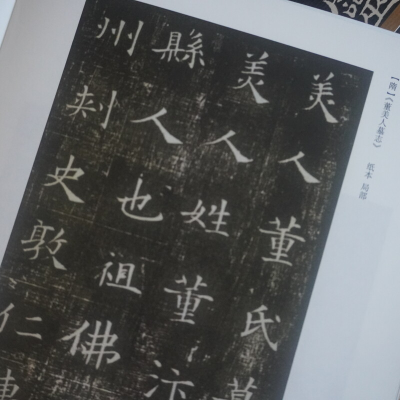 【隋】《董美人墓志》 纸本 局部
美人董氏墓
美人姓董汴
縣人也祖佛
州刺史敦仁